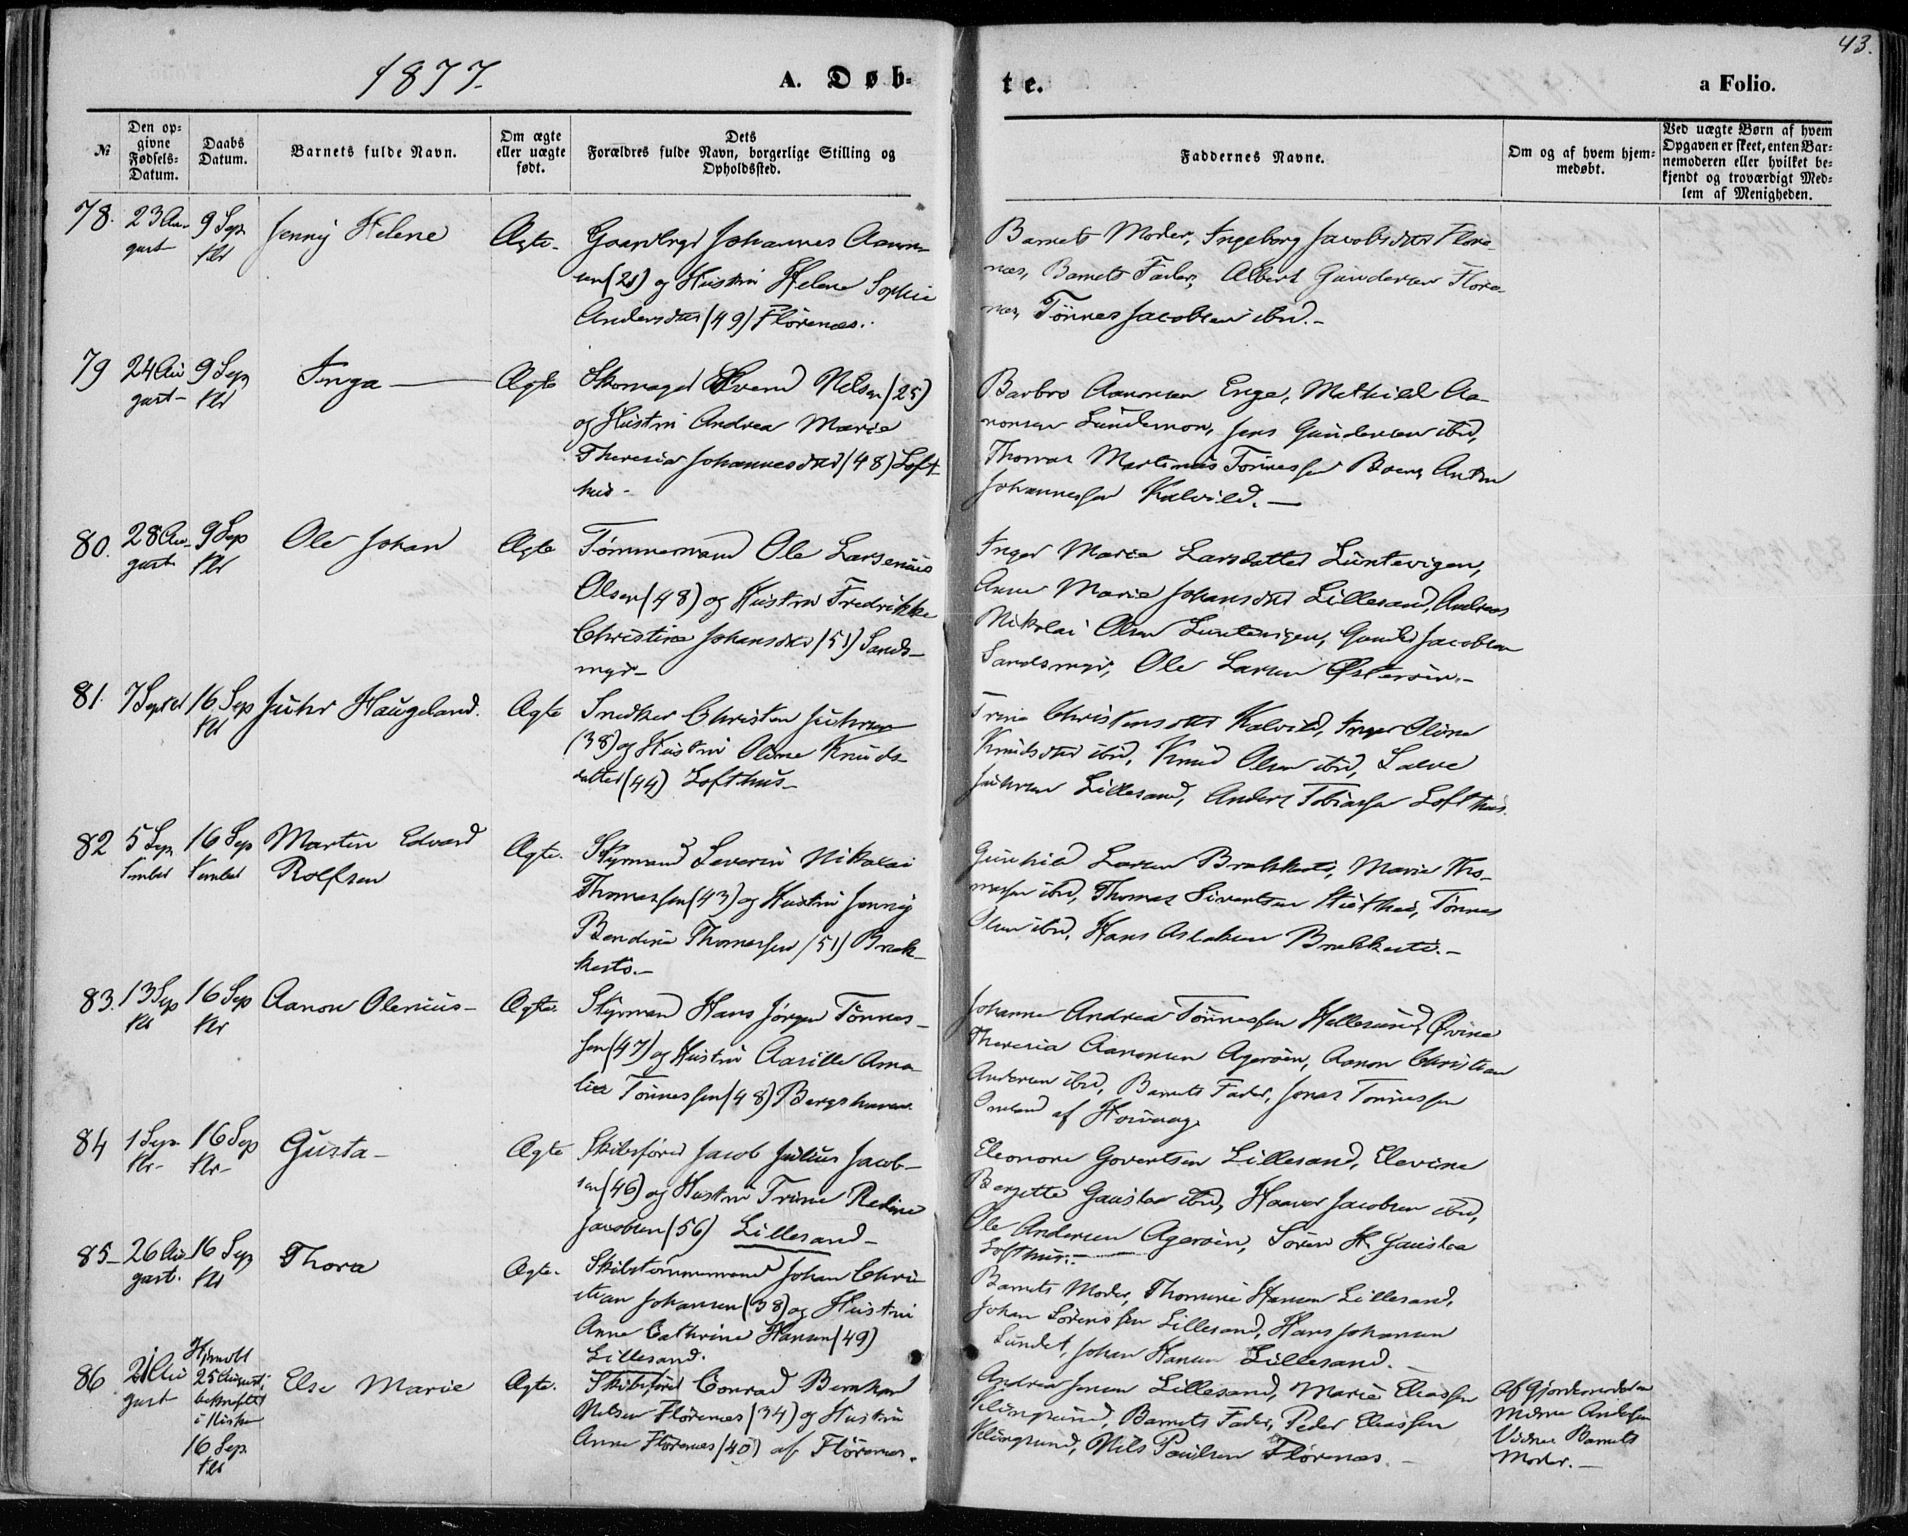 1877.
A. Døb-
te.
43.
a Folio.
№
Den op-
givne
Fødsels-
Datum.
Daabs
Datum.
Barnets fulde Navn.
Om ægte
eller uægte
født.
Dets
Forældres fulde Navn, borgerlige Stilling og
Opholdssted.
Faddernes Navne.
Om og af hvem hjem-
medøbt.
Ved uægte Børn af hvem
Opgaven er skeet, enten Bar-
nemoderen eller hvilket be-
kjendt og troværdigt Med-
lem af Menigheden.
78. 23 Au-
gust
9 Sep
tbr
Jenny Helene
Ægte.
Johannes Aanon-
sen (21) og Hustru Helene Sophie
Andersdtr (49) Flörenæs.
Barnets Moder, Ingeborg Jacobsdtr Flöre-
næs, Barnets Fader, Albert Gundersen Flöre-
næs, Tönnes Jacobsen ibd.-
79 24 Au
gust-
9 Sep
tbr
Inga
Ægte
Skomager Svend Nelsen (25)
og Hustru Andrea Marie
Theresia Johannesdtr (48) Loft-
hus-
Barbro Aanonsen Enge, Mathild Aa-
nonsen Lundemon, Jens Gundersen ibd,
Thomas Martinus Tönnessen Boen, Anton
Johannessen Kalvild.-
80. 28 Au-
gust
9 Sep
tbr
Ole Johan
Ægte
Tömmermand Ole Larsenius
Olsen (48) og Hustru Fredrikke
Christine Johansdtr (51) Sands-
myr-
Inger Marie Larsdatter Luntevigen,
Anne Marie Johansdtr Lillesand, Andreas
Nikolai Olsen Luntevigen, Gunder Jacobsen
Sandsmyr, Ole Larsen Østeröen.-
81. 7 Septbr
16 Sep
tbr
Juhr Haugeland.
Ægte
Snedker Christen Juhrsen
(38) og Hustru Oline Knuds-
datter (44) Lofthus-
Trine Christensdtr Kalvild, Inger Oline
Knudsdtr ibd, Knud Olsen ibd, Salve
Juhrsen Lillesand, Anders Tobiassen Lofthus.
82 5 Sep
tember
16 Sep
tember
Martin Edvard
Rolfsen
Ægte.
Styrmand Severin Nikolai
Thomassen (43) og Hustru Jenny
Bendine Thomassen (51) Bræk-
kestö.-
Gunhild Larsen Brækkestö, Marie Tho-
massen ibd, Thomas Sivertsen Tönnes
Olsen ibd, Hans Aslaksen Brækkestö.-
83. 13 Sep
tbr
16 Sep
tbr
Aanon Olenius-
Ægte.
Styrmand Hans Jörgen Tönnes-
sen (47) og Hustru Aasille Ama-
lie Tönnessen (48) Bergshaven
Johanne Andrea Tönnessen Hellesund, Øvine
Theresia Aanonsen Ageröen, Aanon Christian
Andersen ibd, Barnets Fader, Jonas Tönnessen
Omland af Höivaag
84 1 Sep
tbr-
16 Sep
tbr-
Gusta-
Ægte
Skibsförer Jacob Julius Jacob-
sen (46) og Hustru Trine Redine
Jacobsen (56) Lillesand-
Eleonore Govertsen Lillesand, Elevine
Bergitte Gauslaa ibd, Haavor Jacobsen ibd,
Ole Andersen Ageröen, Sören H. Gauslaa
Lofthus.-
85- 26 Au
gust.
16 Sep
tbr
Thora
Ægte.
Skibstömmermand Johan Chri-
stian Johansen (38) og Hustru
Anne Cathrine Hansen (49)
Lillesand.
Barnets Moder, Thomine Hansen Lillesand,
Johan Sörenssen Lillesand, Hans Johansen
Lundet, Johan Hansen Lillesand.-
86 21 Au
gust
Hjmdbt
25 August,
bekræftet
i Kirken
16 Sep
tbr
Else Marie
Ægte.
Skibsförer Conrad Bernhard
Nelsen Flörenes (34) og Hustru
Anne Flörenes (40) af Flörenes.
Andrea Jensen Lillesand, Marie Eliassen
Barnets Fader, Peder Eliassen
Nils Paulsen Flörenæs.-
Af Gjordemoderen
Andersen
Vidne Barnets
Moder.-